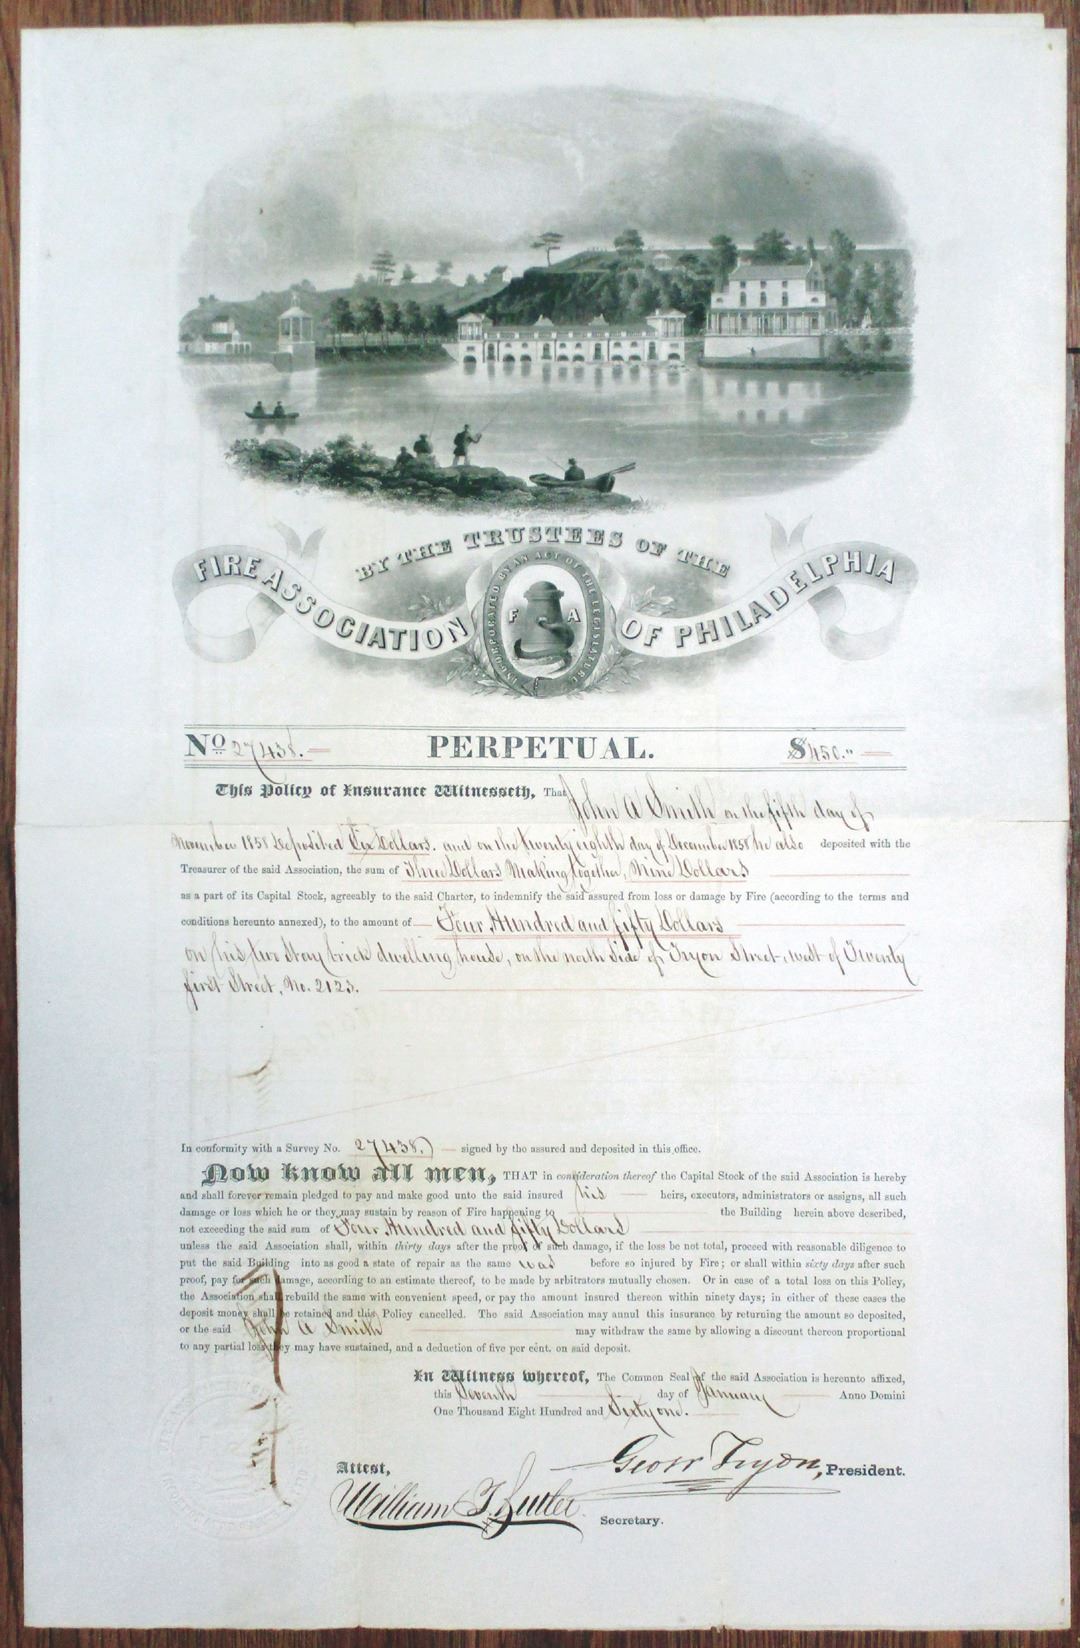 BY THE TRUSTEES OF THE
FIRE ASSOCIATION OF PHILADELPHIA
INCORPORATED BY AN ACT OF THE LEGISLATURE
F A
No 27438. PERPETUAL. $450."
This Policy of Insurance Witnesseth, That John A Smith on the fifth day of
November 1858 deposited Six Dollars. and on the twenty eighth day of December 1858 he also deposited with the
Treasurer of the said Association, the sum of Three Dollars Making together, Nine Dollars
as a part of its Capital Stock, agreeably to the said Charter, to indemnify the said assured from loss or damage by Fire (according to the terms and
conditions hereunto annexed), to the amount of Four Hundred and fifty Dollars
on his two Story brick dwelling house, on the north Side of Tryon Street, west of Twenty
first Street, No. 2123.
In conformity with a Survey No. 27438. signed by the assured and deposited in this office.
Now know all men, THAT in consideration thereof the Capital Stock of the said Association is hereby
and shall forever remain pledged to pay and make good unto the said insured his heirs, executors, administrators or assigns, all such
damage or loss which he or they may sustain by reason of Fire happening to the Building herein above described,
not exceeding the said sum of Four Hundred and fifty Dollars
unless the said Association shall, within thirty days after the proof of such damage, if the loss be not total, proceed with reasonable diligence to
put the said Building into as good a state of repair as the same was before so injured by Fire; or shall within sixty days after such
proof, pay for such damage, according to an estimate thereof, to be made by arbitrators mutually chosen. Or in case of a total loss on this Policy,
the Association shall rebuild the same with convenient speed, or pay the amount insured thereon within ninety days; in either of these cases the
deposit money shall be retained and this Policy cancelled. The said Association may annul this insurance by returning the amount so deposited,
or the said John A Smith may withdraw the same by allowing a discount thereon proportional
to any partial loss they may have sustained, and a deduction of five per cent. on said deposit.
In Witness whereof, The Common Seal of the said Association is hereunto affixed,
this Seventh day of January Anno Domini
One Thousand Eight Hundred and Sixty one.
Geo W Tryon, President.
Attest,
William T. Butler. Secretary.